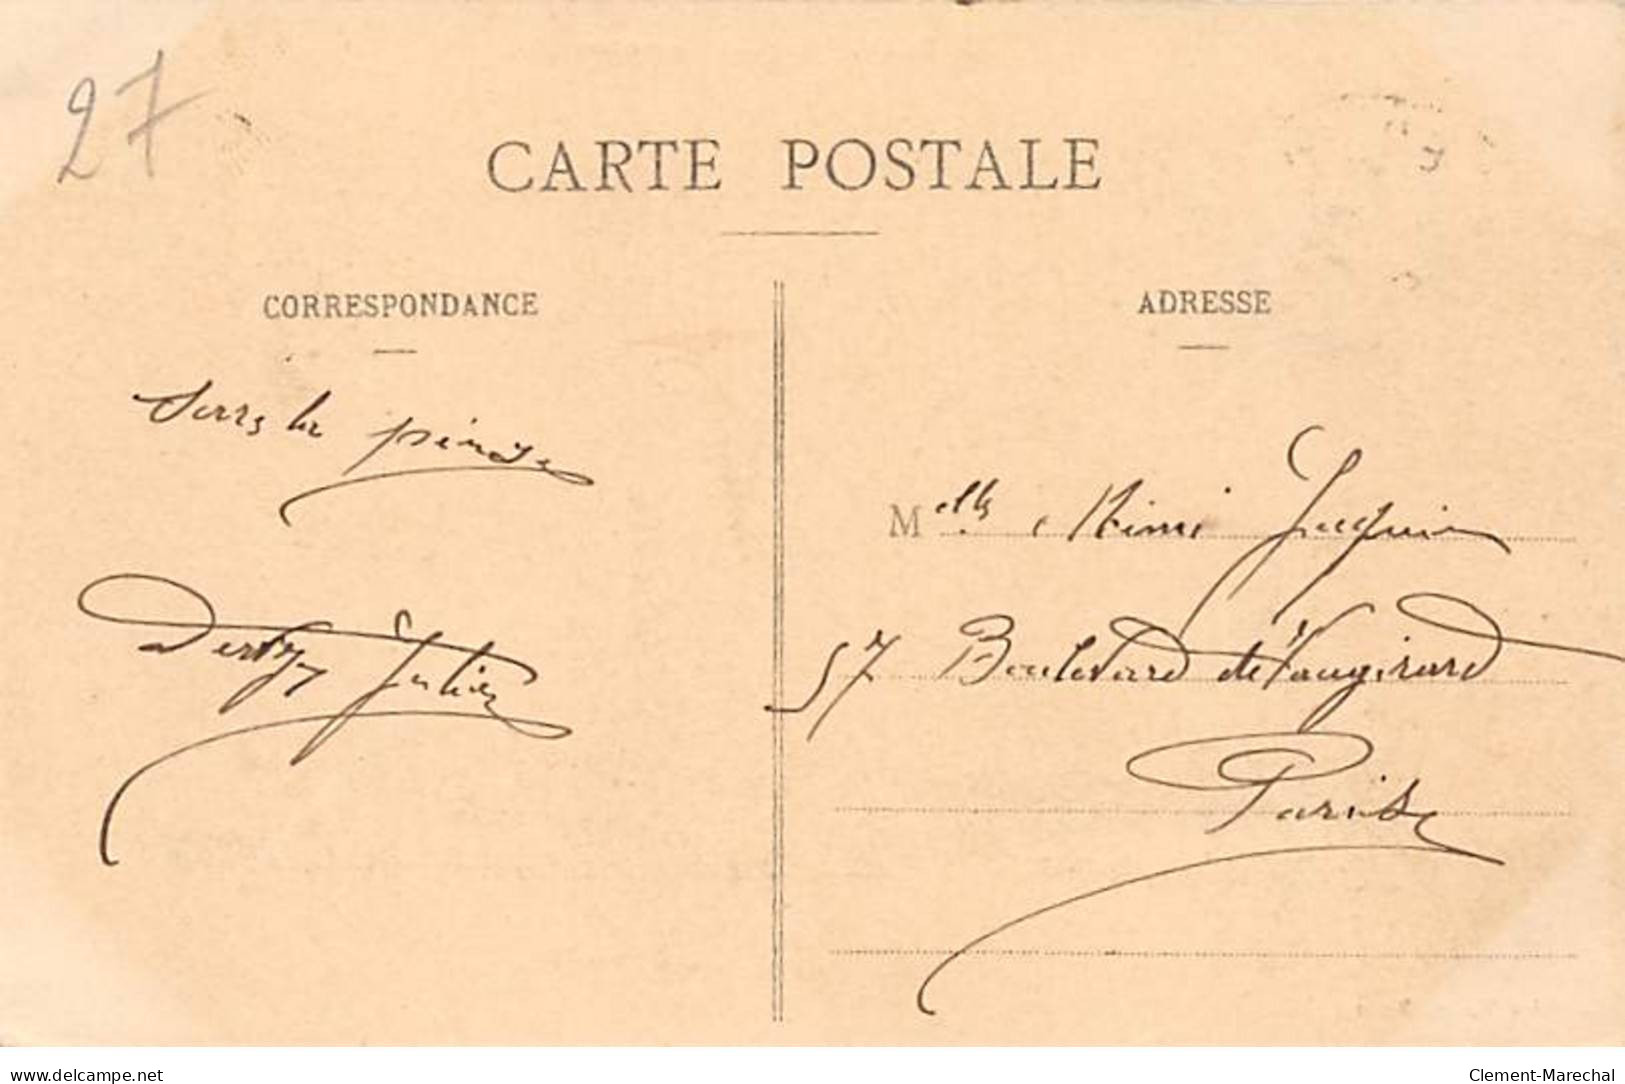 27
CARTE POSTALE
CORRESPONDANCE
ADRESSE
Serrs la pince
Julien
Melle Mimi Jacquin
57 Boulevard de Vaugirard
Paris
www.delcampe.net
Clement-Marechal